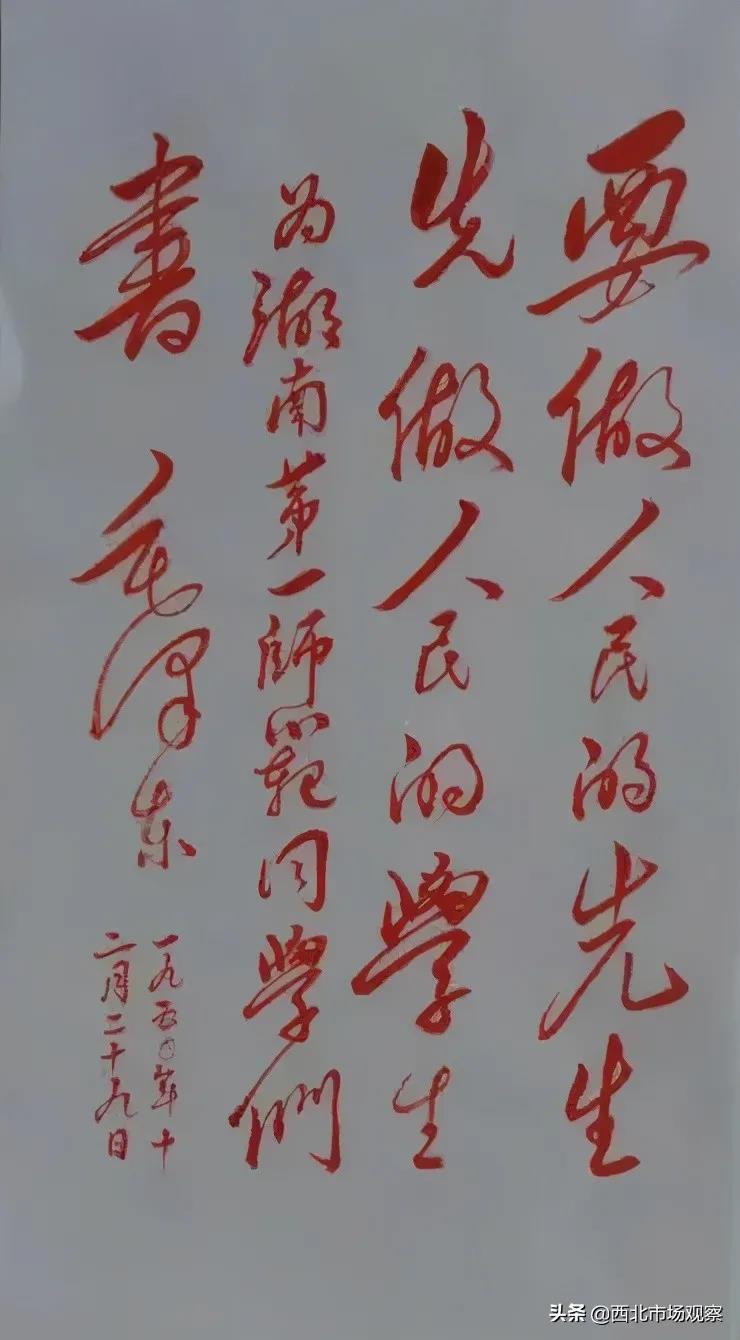 要做人民的先生
先做人民的學生
为湖南第一師範同學們
書 毛澤东
一九五〇年十
二月二十九日
头条 @西北市场观察